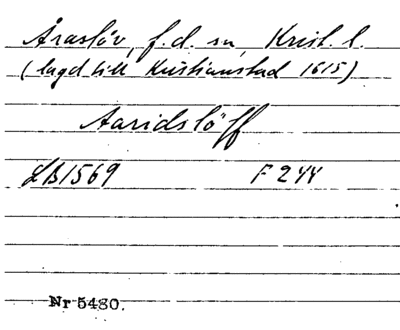 Åraslöv, f.d. sn, Krist. l.
(lagd till Kristianstad 1615)
Aaridslöff
LB1569 F 244
Nr 5480.